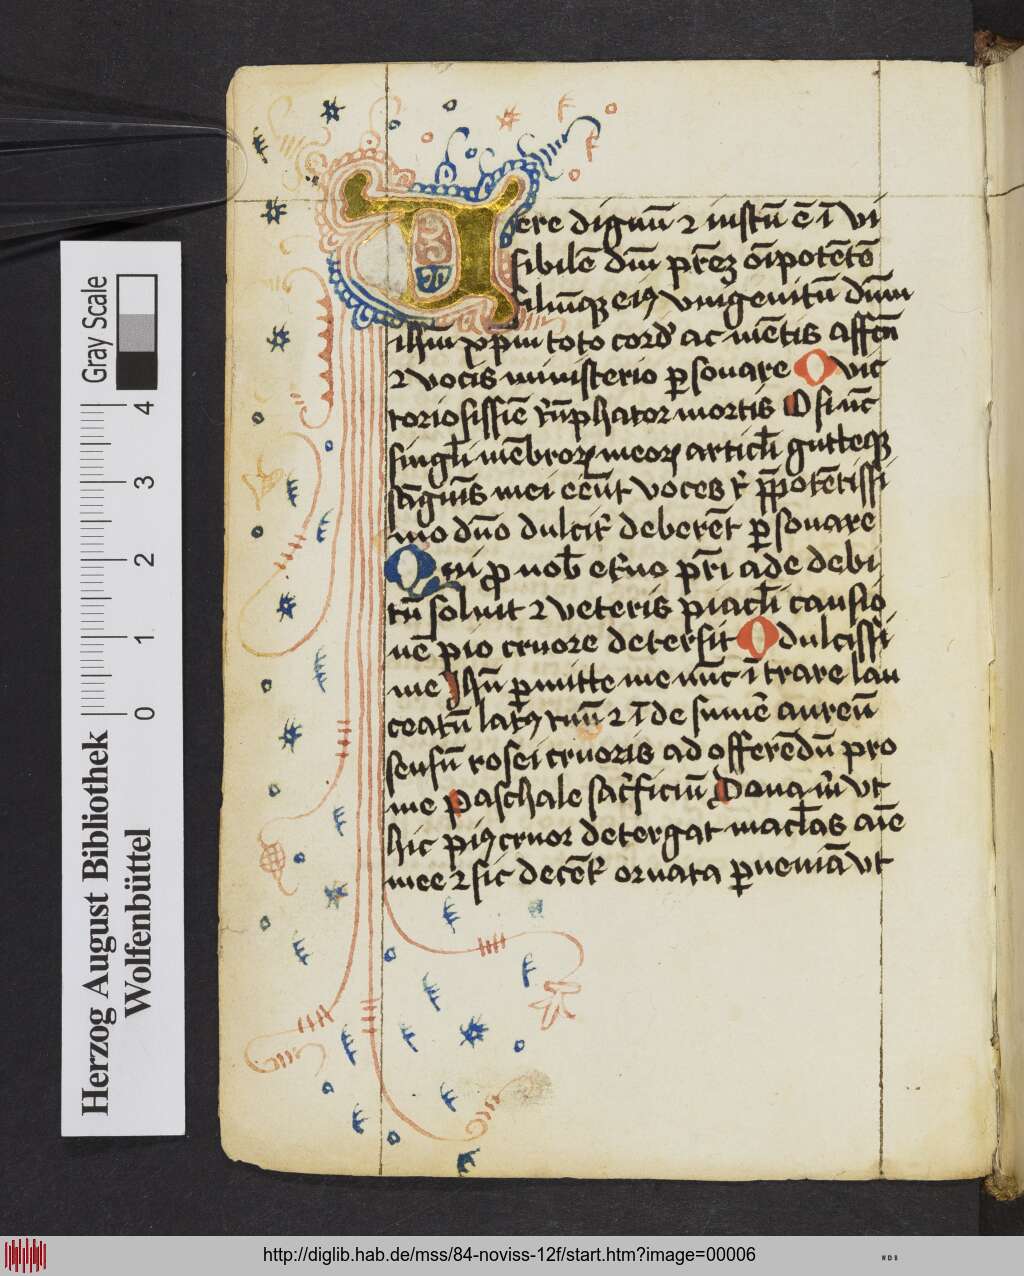 Vere dignū ⁊ iustū ē ī vi
sibilē dm̄ pr̄eꝫ oīpotētē
filiūqꝫ eiꝰ vnigenitū dnm̄
ihm̄ xpm̄ toto cord' ac mētis affcū
⁊ vocis ministerio ꝑsonare O vic
toriosissīe tūphator mortis O si nūc
singl'i mēbroꝝ meoꝝ articl'i gutteqꝫ
sāguīs mei eēnt voces t' p̄potētissi
mo dn̄o dulcit' deberēt ꝑsonare
Qui ꝓ nob' et'no pr̄i ade debi
tū soluit ⁊ veteris piacl'i cautio
nē pio cruore detersit O dulcissi
me Ihū ꝑmitte me nūc ītrare lan
ceatū latꝰ tuū ⁊ īde sumē aureū
sensū rosei cruoris ad offerēdū pro
me Paschale sac'ficiū Dona m̄ vt
hic piꝰ cruor detergat macl'as aīe
mee ⁊ sic decēt' ornata ꝑueniā vt
Herzog August Bibliothek
Wolfenbüttel
0 1 2 3 4
Gray Scale
http://diglib.hab.de/mss/84-noviss-12f/start.htm?image=00006